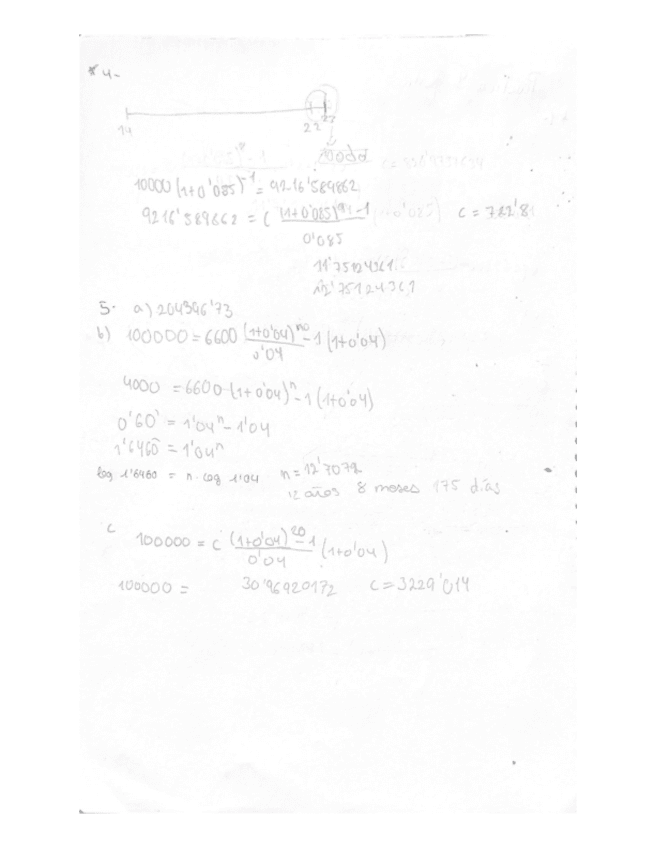 * 4-
14 22 23
10000 (1+0'085)^-1 = 9216'589862
9216'589862 = C ((1+0'085)^ -1)/0'085 C = 782'81
11'75124361
12'75124361
5. a) 204396'73
b) 100000 = 6600 (1+0'04)^n - 1/0'04 (1+0'04)
4000 = 6600 (1+0'04)^n - 1 (1+0'04)
0'60 = 1'04^n - 1'04
1'6460 = 1'04^n
log 1'6460 = n · log 1'04 n = 12'7072
12 años 8 meses 175 días
c 100000 = C (1+0'04)^20 - 1/0'04 (1+0'04)
100000 = 30'96920172 C = 3229'014